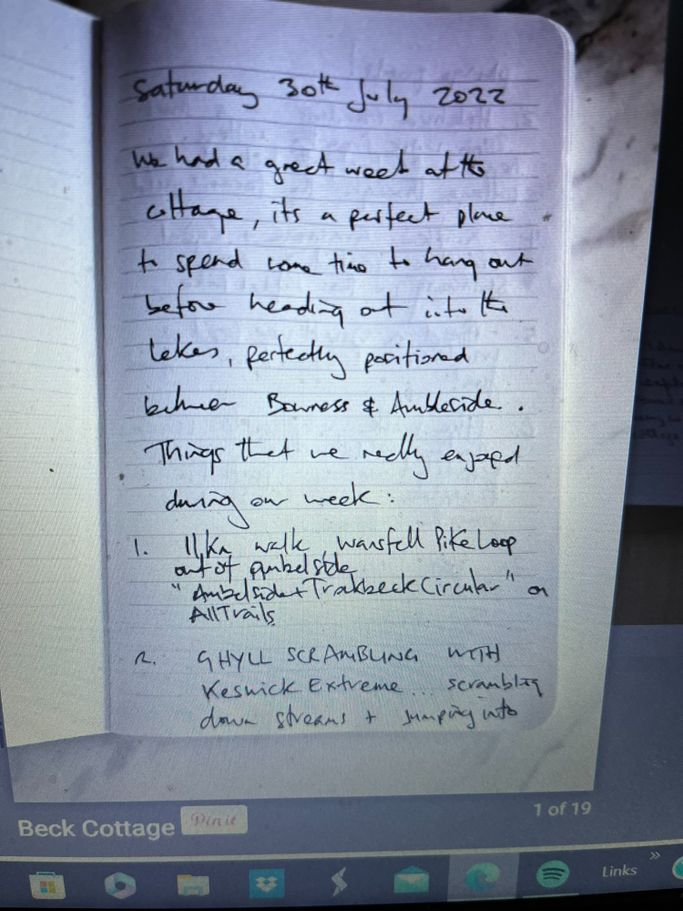 Saturday 30th July 2022
We had a great week at the
cottage, its a perfect place
to spend some time to hang out
before heading out into the
lakes, perfectly positioned
between Bowness & Ambleside.
Things that we really enjoyed
during our week:
1. 11km walk, Wansfell Pike Loop
out of Ambelside
"Ambelside + Troutbeck Circular" on
AllTrails
2. GHYLL SCRAMBLING WITH
Keswick Extreme... scrambling
down streams + jumping into
1 of 19
Beck Cottage Pin it
Links »